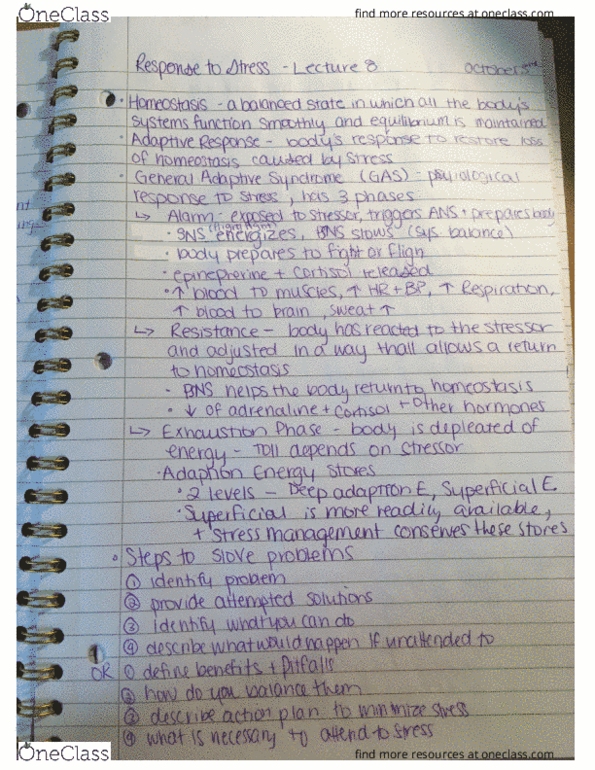 OneClass
find more resources at oneclass.com
Response to Stress - Lecture 8 October 3rd
· Homeostasis - a balanced state in which all the body's
systems function smoothly and equilibrium is maintained
· Adaptive Response - body's response to restore loss
of homeostasis caused by stress
· General Adaptive Syndrome (GAS) - psyiological
response to stress, has 3 phases
↳ Alarm - exposed to stressor, triggers ANS + prepares body
· SNS energizes, PNS slows (sys. balance)
· body prepares to fight or fligh
· epinepherine + cortisol released
· ↑ blood to muscles, ↑ HR + BP, ↑ Respiration,
↑ blood to brain, sweat ↑
↳ Resistance - body has reacted to the stressor
and adjusted in a way thall allows a return
to homeostasis
· PNS helps the body return to homeostasis
· ↓ of adrenaline + cortisol + other hormones
↳ Exhaustion Phase - body is depleated of
energy - toll depends on stressor
· Adaption Energy Stores
· 2 levels - Deep adaption E, Superficial E.
· Superficial is more readily available,
+ stress management conserves these stores
· Steps to slove problems
① identify problem
② provide attempted solutions
③ identify what you can do
④ describe what would happen if unattended to
OR ① define benefits + pitfalls
② how do you balance them
③ describe action plan to minimize stress
④ what is necessary to attend to stress
OneClass
find more resources at oneclass.com